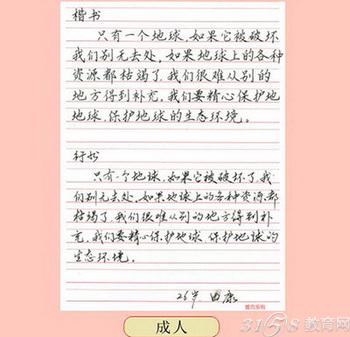 楷书
只有一个地球,如果它被破坏
我们别无去处,如果地球上的各种
资源都枯竭了,我们很难从别的
地方得到补充,我们要精心保护地
地球,保护地球的生态环境。
行书
只有一个地球,如果它被破坏了,我
们别无去处,如果地球上的各种资源都
枯竭了,我们很难从别的地方得到补
充,我们要精心保护地球,保护地球的
生态环境。
26岁 康
成人
3158教育网